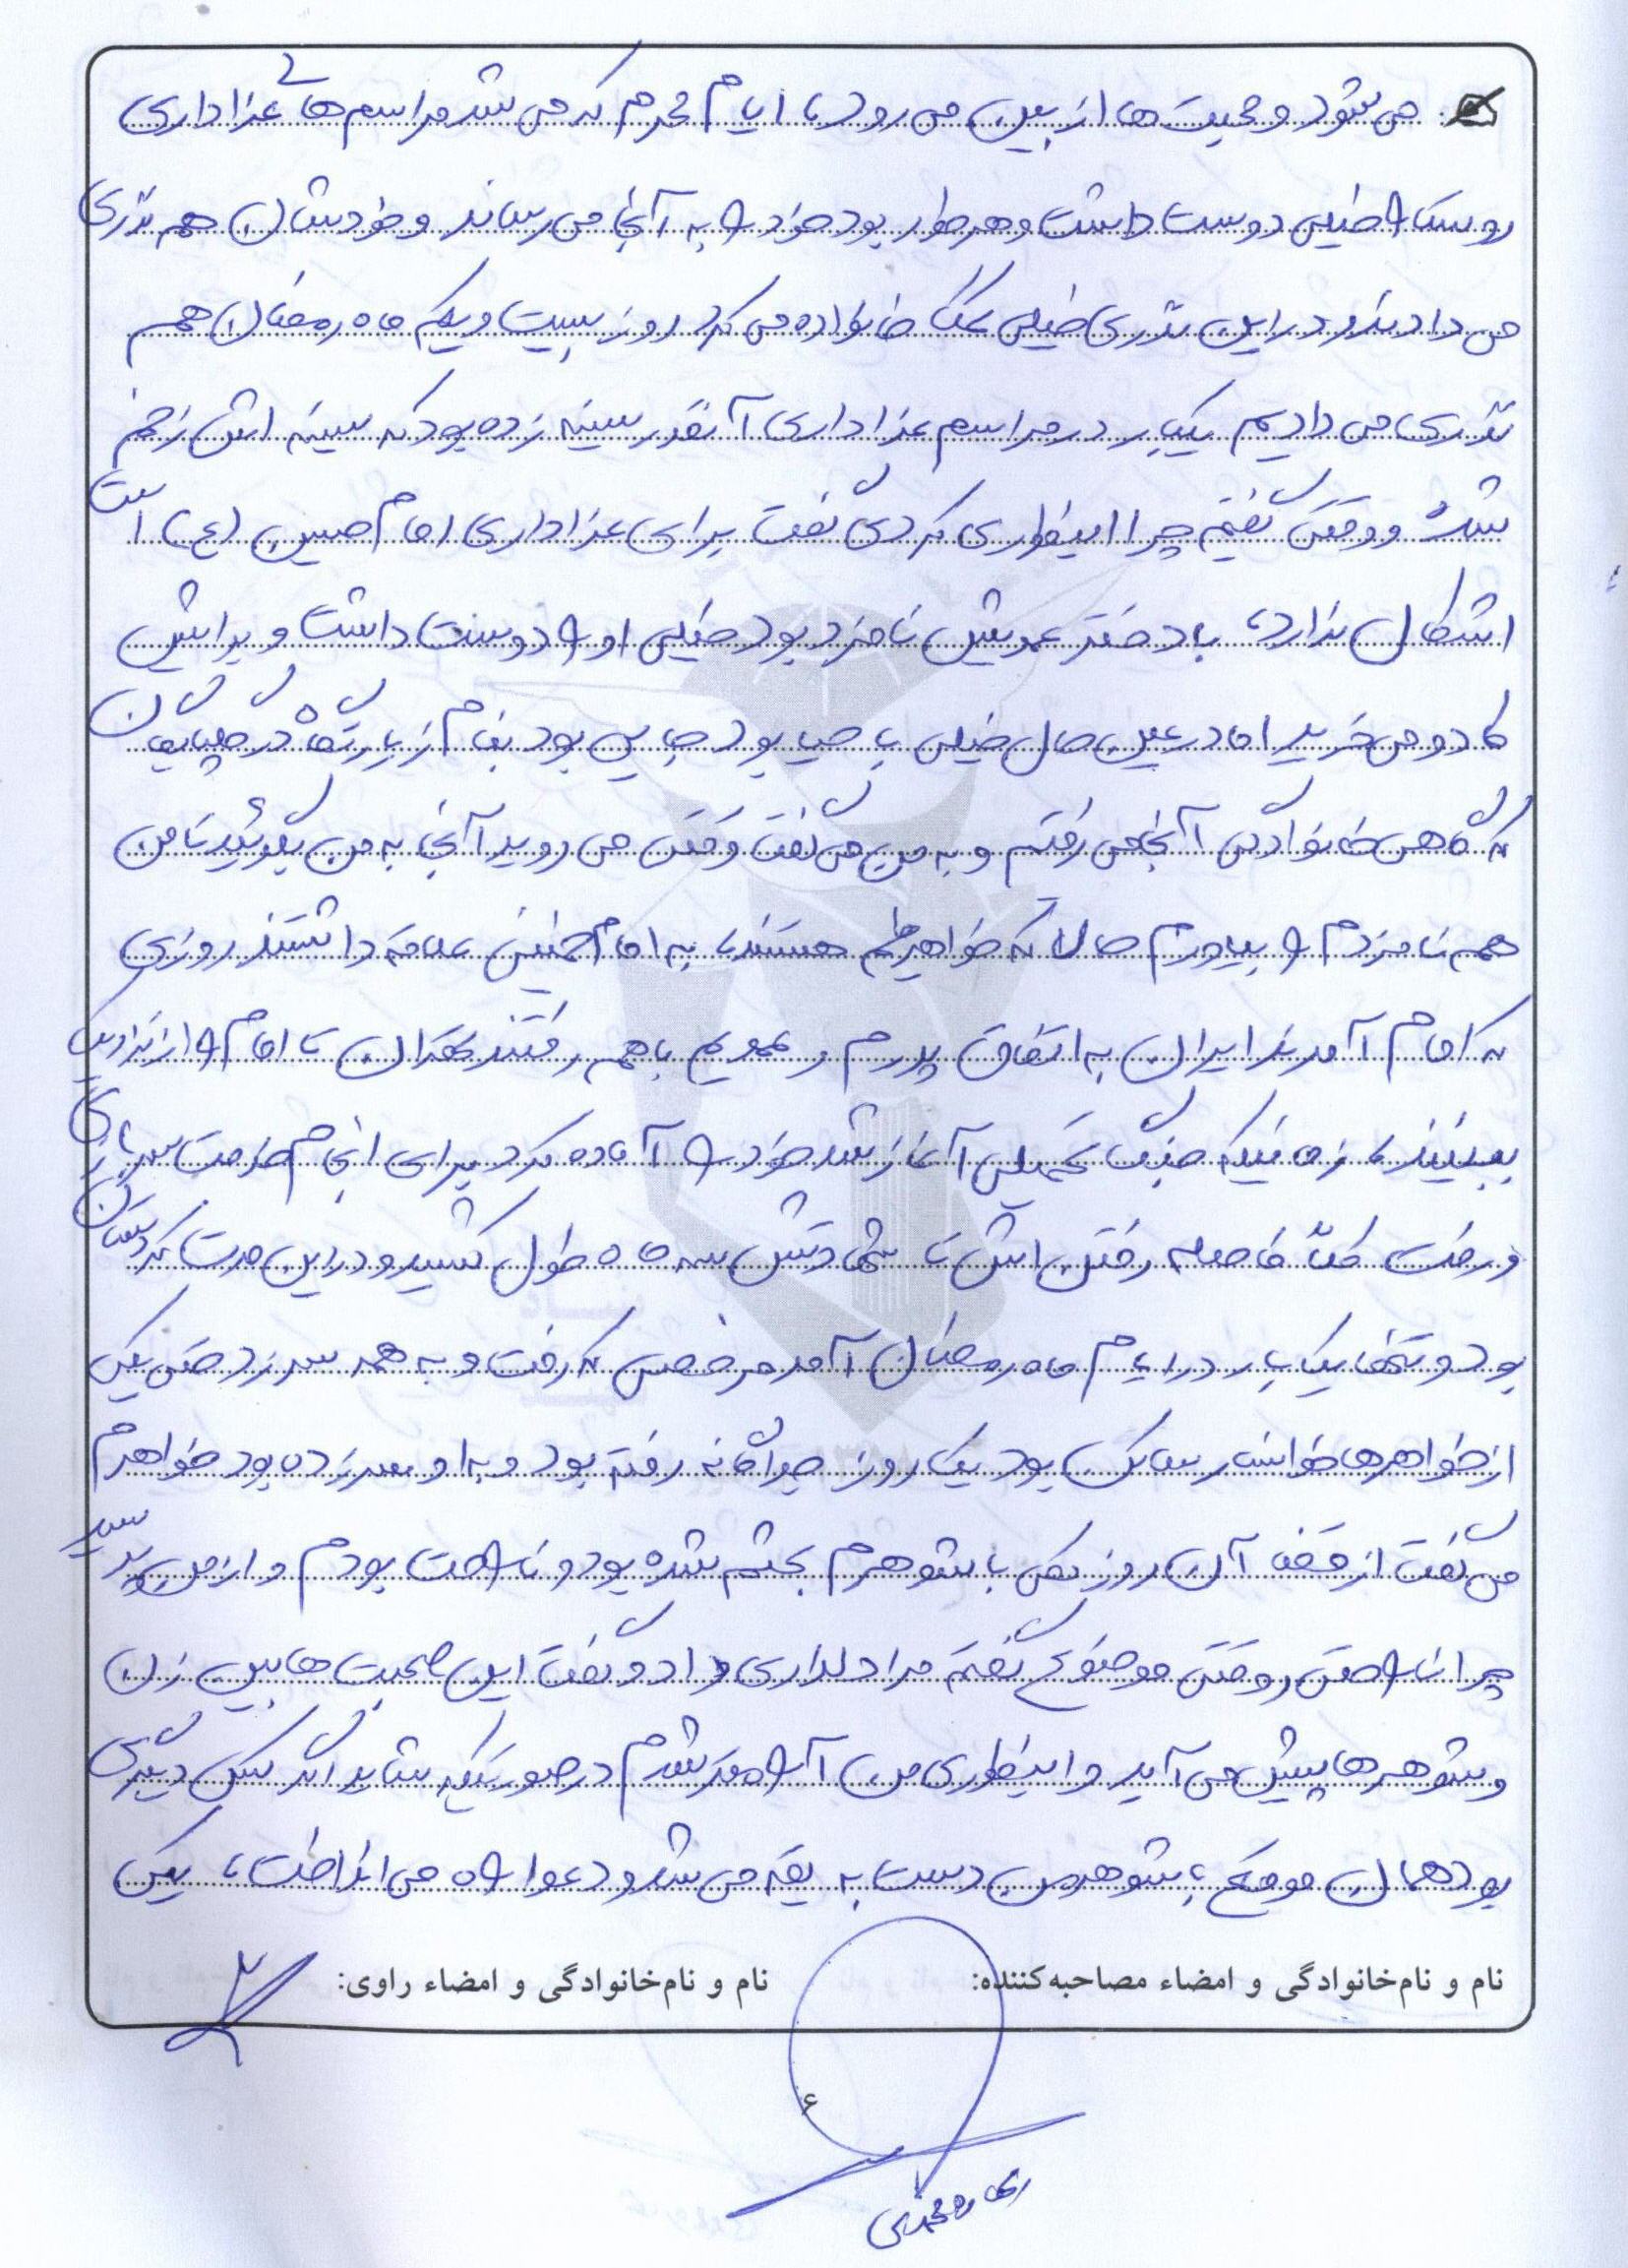 می شود و محبت ها از بین می رود، ایام محرم که می شد مراسم های عزاداری
روستا را خیلی دوست داشت و هر طور بود خود را به آنجا می رساند و خودشان هم نذری
می دادند و در این نذری خیلی کمک خانواده می کرد روز بیست و یکم ماه رمضان هم
نذری می دادیم یکبار در مراسم عزاداری آنقدر سینه زده بود که سینه اش زخم
شده و وقتی گفتیم چرا اینطوری کردی گفت برای عزاداری امام حسین (ع) است
اشکال ندارد، با دختر عمویش نامزد بود خیلی او را دوست داشت و برایش
کادو می خرید اما در عین حال خیلی با حیا بود جایی بود بنام زیارتگاه در
که گاهی خانوادگی آنجا می رفتیم و به من می گفت وقتی می روید آنجا به من بگوئید تا من
هم نامزدم را بیاورم حالا که خواهرها هم هستند، به امام خمینی علاقه داشتند روزی
که امام آمدند ایران به اتفاق پدرم و عمویم با هم رفتند تهران تا امام را از نزدیک
ببینند، زمانیکه جنگ تحمیلی آغاز شد خود را آماده کرد برای انجام خدمت سربازی
و رفت کلاً فاصله رفتن اش تا شهادتش سه ماه طول کشید و در این مدت کردستان
بود و تنها یک بار در ایام ماه رمضان آمد مرخصی گرفت و به همه سر زد حتی یکی
از خواهرها خوانسار ساکن بود یک روز جداگانه رفته بود و به او سر زده بود خواهرم
می گفت از قضا آن روز با شوهرم بحثم شده بود و ناراحت بودم و از من پرسید
چرا ناراحتی و وقتی موضوع را گفتم مرا دلداری داد و گفت این صحبت ها بین زن
و شوهرها پیش می آید و اینطوری من آرام تر شدم در صورتیکه شاید اگر کس دیگری
بود همان موقع با شوهر من دست به یقه می شد و دعوا راه می انداخت، یکی
نام و نام‌خانوادگی و امضاء مصاحبه‌کننده: نام و نام‌خانوادگی و امضاء راوی:
۶